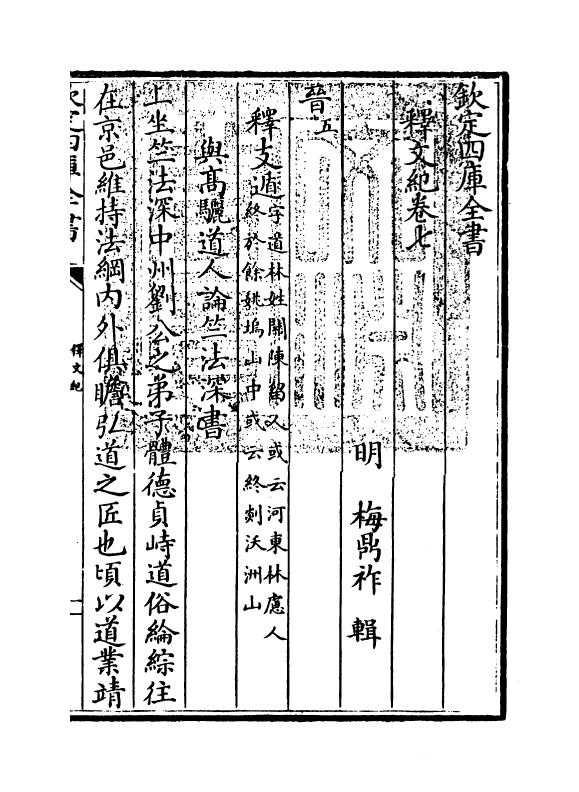 欽定四庫全書
釋文紀卷七
明　梅鼎祚　輯
晉五
釋支遁字道林姓關陳留人或云河東林慮人終於餘姚塢山中或云終剡沃洲山
與高驪道人論竺法深書
上坐竺法深中州劉公之弟子體德貞峙道俗綸綜往
在京邑維持法綱內外俱瞻弘道之匠也頃以道業靖
欽定四庫全書
釋文紀
一